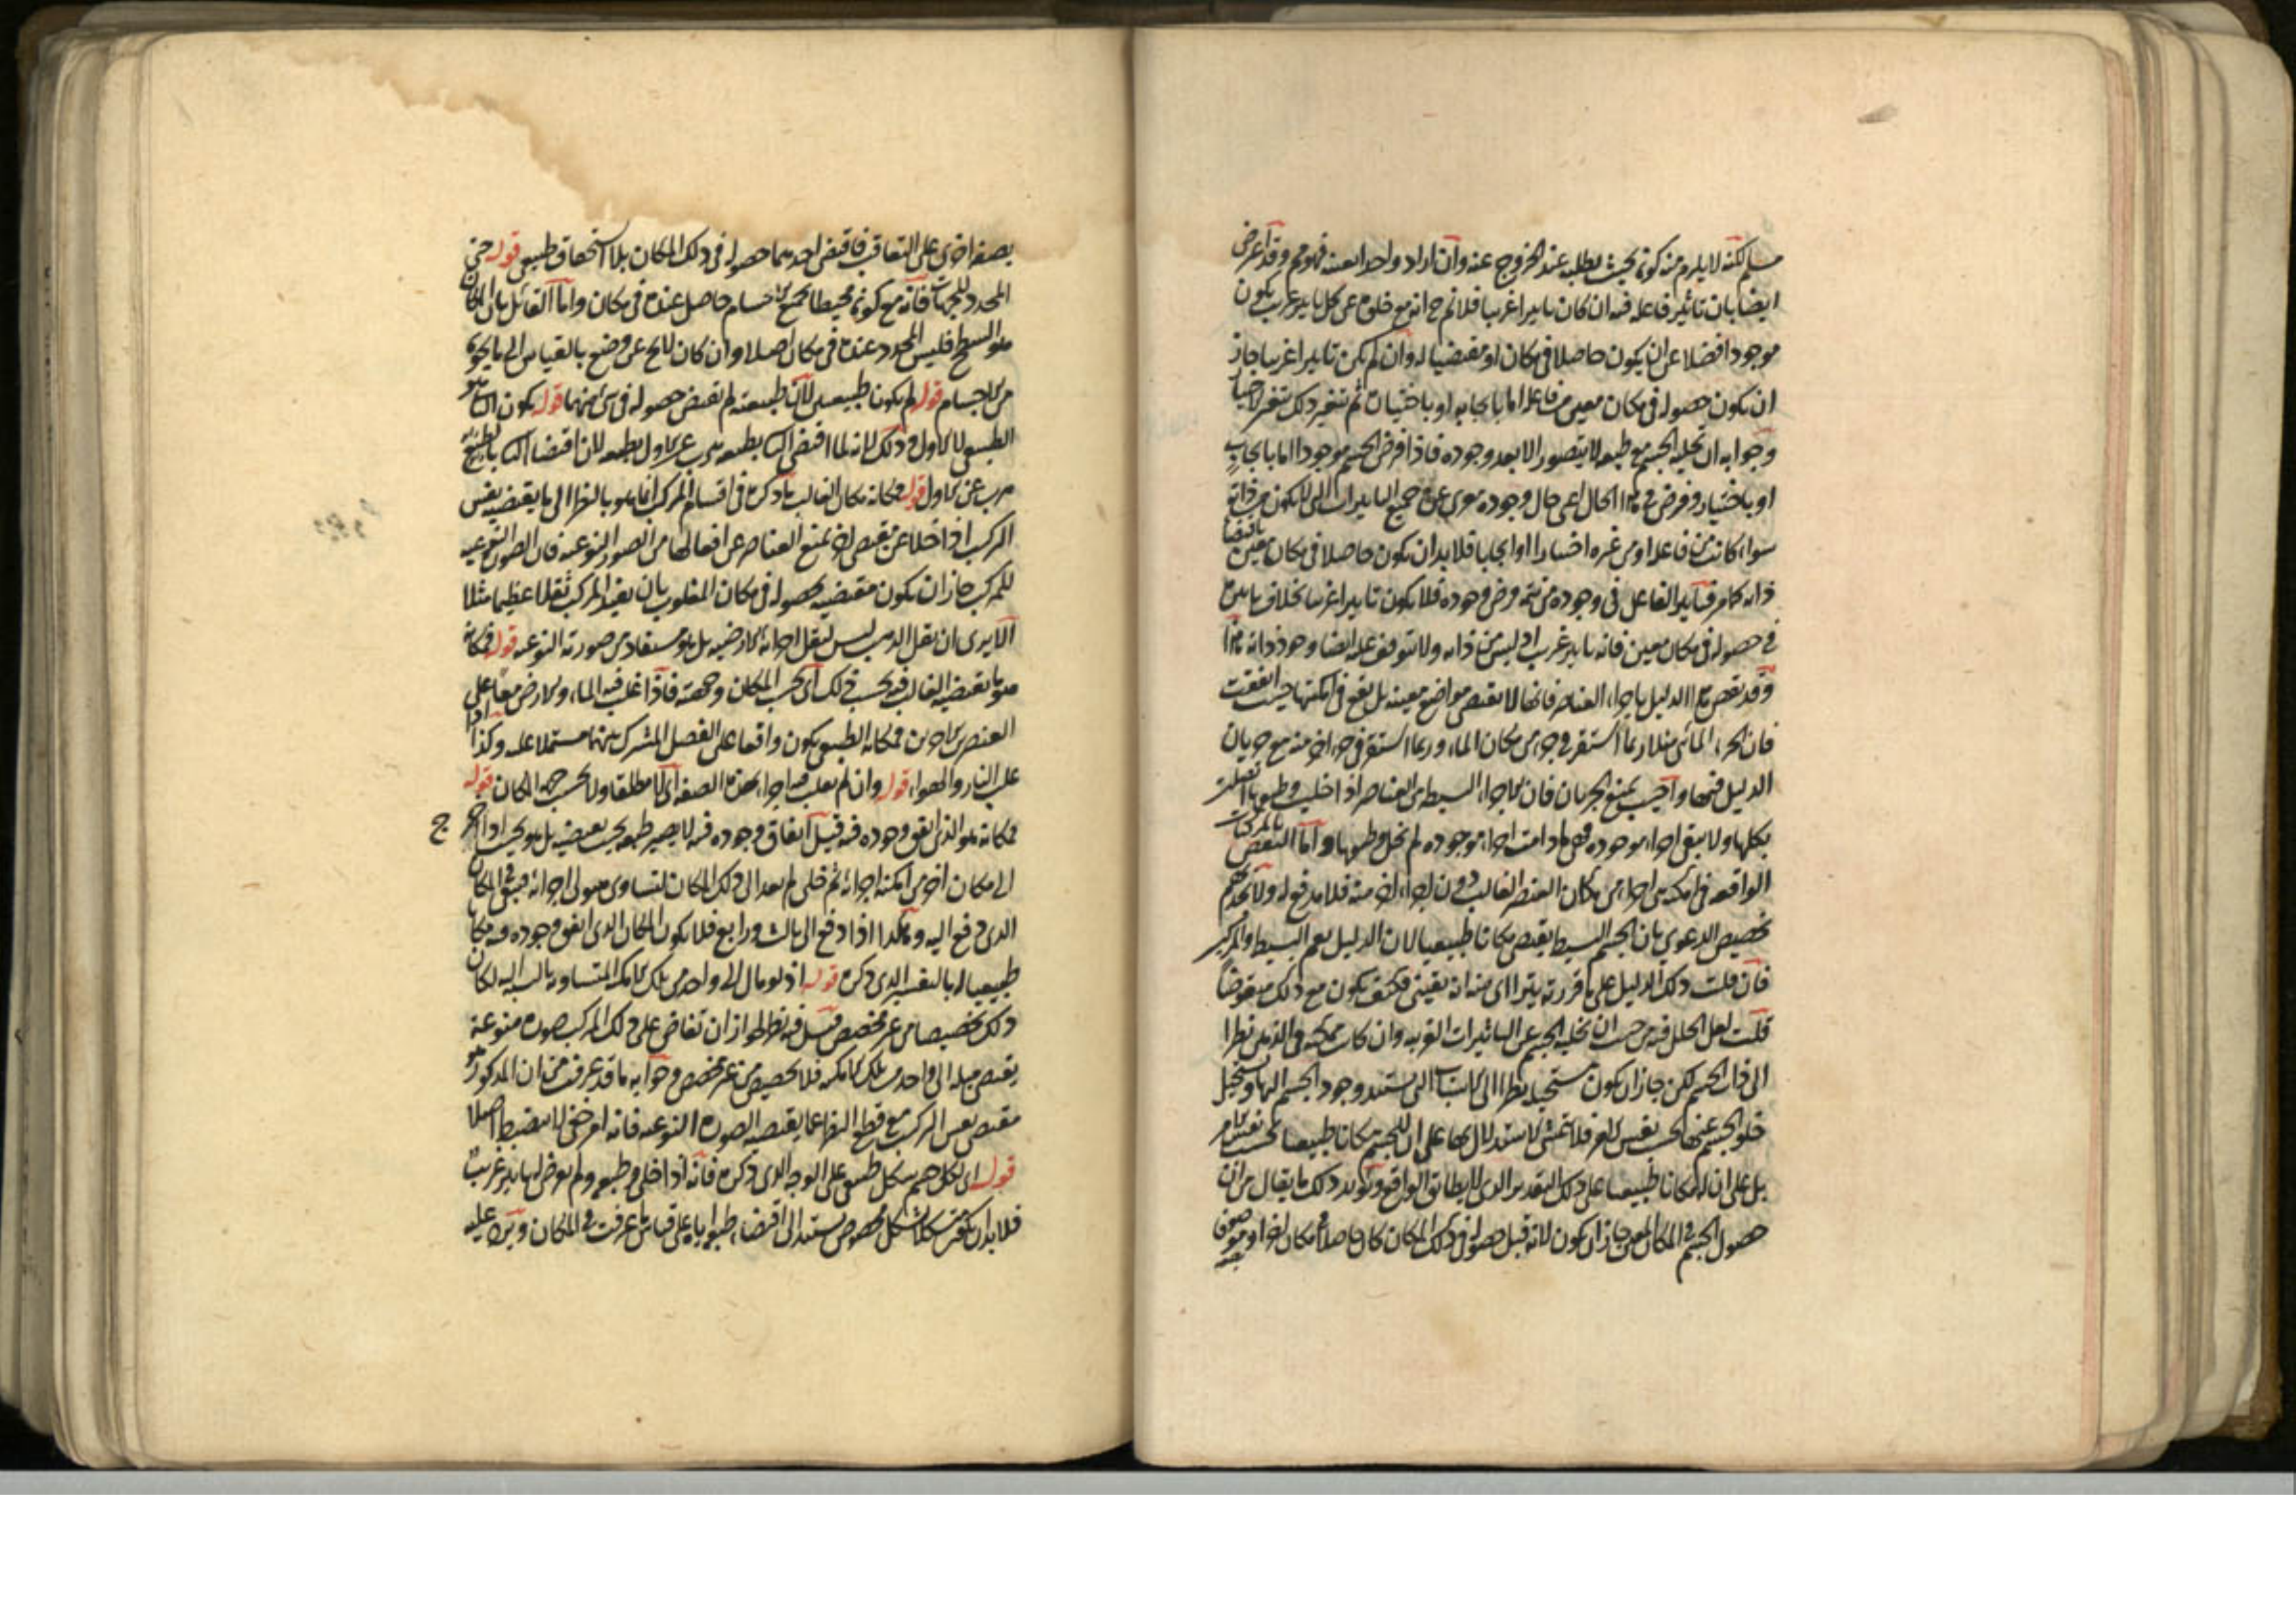 مسلم لكنه لا يلزم منه كونه بحيث يطلبه عند الخروج عنه وان اراد واحدا بعينه فهو مم وقد اعرض
ايضا بان تاثير فاعله فيه ان كان تاثيرا غريبا فلا نم ح انه مع خلوه عن كل تاثير غريب يكون
موجودا فضلا عن ان يكون حاصلا في مكان او مقتضيا له وان لم يكن تاثيرا غريبا جاز
ان يكون حصوله في مكان معين من فاعله اما بايجابه او باختياره ثم يتغير ذلك بتغير
وجوابه ان تخلية الجسم مع طبعه لا يتصور الا بعد وجوده فاذا فرض الجسم موجودا اما بايجاب
او باختيار وفرض في هذا الحال اعني حال وجوده معرى عن جميع التاثيرات التي لا تكون من ذاته
سواء كانت من فاعله او من غيره اختيارا او ايجابا فلا بد ان يكون حاصلا في مكان معين باقتضاء
ذاته كما مر فتاثير الفاعل في وجوده من تتمة فرض وجوده فلا يكون تاثيرا غريبا بخلاف تاثيره
في حصوله في مكان معين فانه تاثير غريب اذ ليس من ذاته ولا يتوقف عليه ايضا وجود ذاته هذا
وقد نقض هذا الدليل باجزاء العناصر فانها لا تقتضي مواضع معينة بل تقع في امكنتها حيث اتفقت
فان الجزء المائي مثلا ربما استقر في جزء من مكان الماء وربما استقر في جزء اخر منه مع جريان
الدليل فيها واجيب بمنع الجريان فان الاجزاء البسيطة من العناصر اذا خليت وطبعها اتصلت
بكلها ولا يبقى اجزاء موجودة فهي ما دامت اجزاء موجودة لم تخل وطبعها واما النقض بالمركبات
الواقعة في امكنة هي اجزاء من مكان العنصر الغالب دون اجزاء اخر منه فلا مدفع له ولا يجديهم
تخصيص الدعوى بان الجسم البسيط يقتضي مكانا طبيعيا لان الدليل يعم البسيط والمركب
فان قلت ذلك الدليل على ما قررته يترااى منه انه يقيني فكيف يكون مع ذلك منقوضا
قلت لعل الخلل فيه من حيث ان تخلية الجسم عن التاثيرات الغريبة وان كانت ممكنة في الذهن نظرا
الى ذات الجسم لكن جاز ان يكون مستحيلا نظرا الى الاسباب التي يستند وجود الجسم اليها ويستحيل
خلو الجسم عنها بحسب نفس الامر فلا يتمشى الاستدلال بها على ان للجسم مكانا طبيعيا بحسب نفس الامر
بل على ان له مكانا طبيعيا على ذلك التقدير الذي لا يطابق الواقع ويؤيد ذلك ما يقال من ان
حصول الجسم في المكان المعين جاز ان يكون لانه قبل حصوله في ذلك المكان كان حاصلا في مكان اخر او موصوفا
بصفة
بصفة اخرى على التعاقب فاقتضى احدهما حصوله في ذلك المكان بلا استحقاق طبيعي قوله حتى
المحدد للجهات فانه مع كونه محيطا بجميع الاجسام حاصل عنده في مكان واما القائل بان المكان
هو السطح فليس المحدد عنده في مكان اصلا وان كان لا يخ عن وضع بالقياس الى ما يحويه
من الاجسام قوله لم يكونا طبيعيين لان طبيعته لم تقتض حصوله في شئ منهما قوله يكون الثاني هو
الطبيعي لا الاول وذلك لانه لما اقتضى الثاني بطبعه هرب عن الاول بطبعه لان اقتضاء الثاني بالطبع
هرب عن الاول قوله فمكانه مكان الغالب ما ذكره في اقسام المركب انما هو بالنظر الى ما يقتضيه نفس
التركيب اذا خلا عن مقتض اخر يمنع العناصر عن افعالها من الصور النوعية فان الصورة النوعية
للمركب جاز ان تكون مقتضية لحصوله في مكان المغلوب بان يفيد المركب ثقلا عظيما مثلا
الا يرى ان ثقل الذهب ليس لثقل اجزائه الارضية بل هو مستفاد من صورته النوعية قوله فمكانه
هو ما يقتضيه الغالب فيه بحسب ذلك اي بحسب المكان وجهته فاذا غلب فيه الماء والارض معا على
العنصرين الاخرين فمكانه الطبيعي يكون واقعا على الفصل المشترك بينهما مشتملا عليه وكذا اذا
غلب النار والهواء قوله وان لم يغلب فيه اجزاء بهذه الصفة اي لا مطلقا ولا بحسب جهة المكان قوله
فمكانه هو الذي اتفق وجوده فيه قيل اتفاق وجوده فيه لا يصير طبعه بحيث يقتضيه بل هو بحيث اذا اخرج
الى مكان اخر من امكنة اجزائه ثم خلي لم يعد الى ذلك المكان لتساوي ميول اجزائه فيبقى في المكان
الذي دفع اليه وهكذا اذا دفع الى ثالث ورابع فلا يكون المكان الذي اتفق وجوده فيه مكانا
طبيعيا له بالتفسير الذي ذكره قوله اذ لو مال الى واحد من تلك الامكنة المتساوية بالنسبة اليه لكان
ذلك تخصيصا من غير مخصص قيل فيه نظر لجواز ان تفاض على ذلك المركب صورة منوعة
يقتضي ميلا الى واحد من تلك الامكنة فلا تخصيص من غير مخصص وجوابه ما قد عرفت من ان المذكور هو
مقتضى نفس التركيب مع قطع النظر عما يقتضيه الصورة النوعية فانه امر خفي لا ينضبط اصلا
قوله اي لكل جسم شكل طبيعي على الوجه الذي ذكره فانه اذا خلي وطبعه ولم يعرض له تاثير غريب
فلا بد ان يكون متشكلا بشكل مخصوص يستند الى اقتضاء طبعه اياه على قياس ما عرفت في المكان ويرد عليه